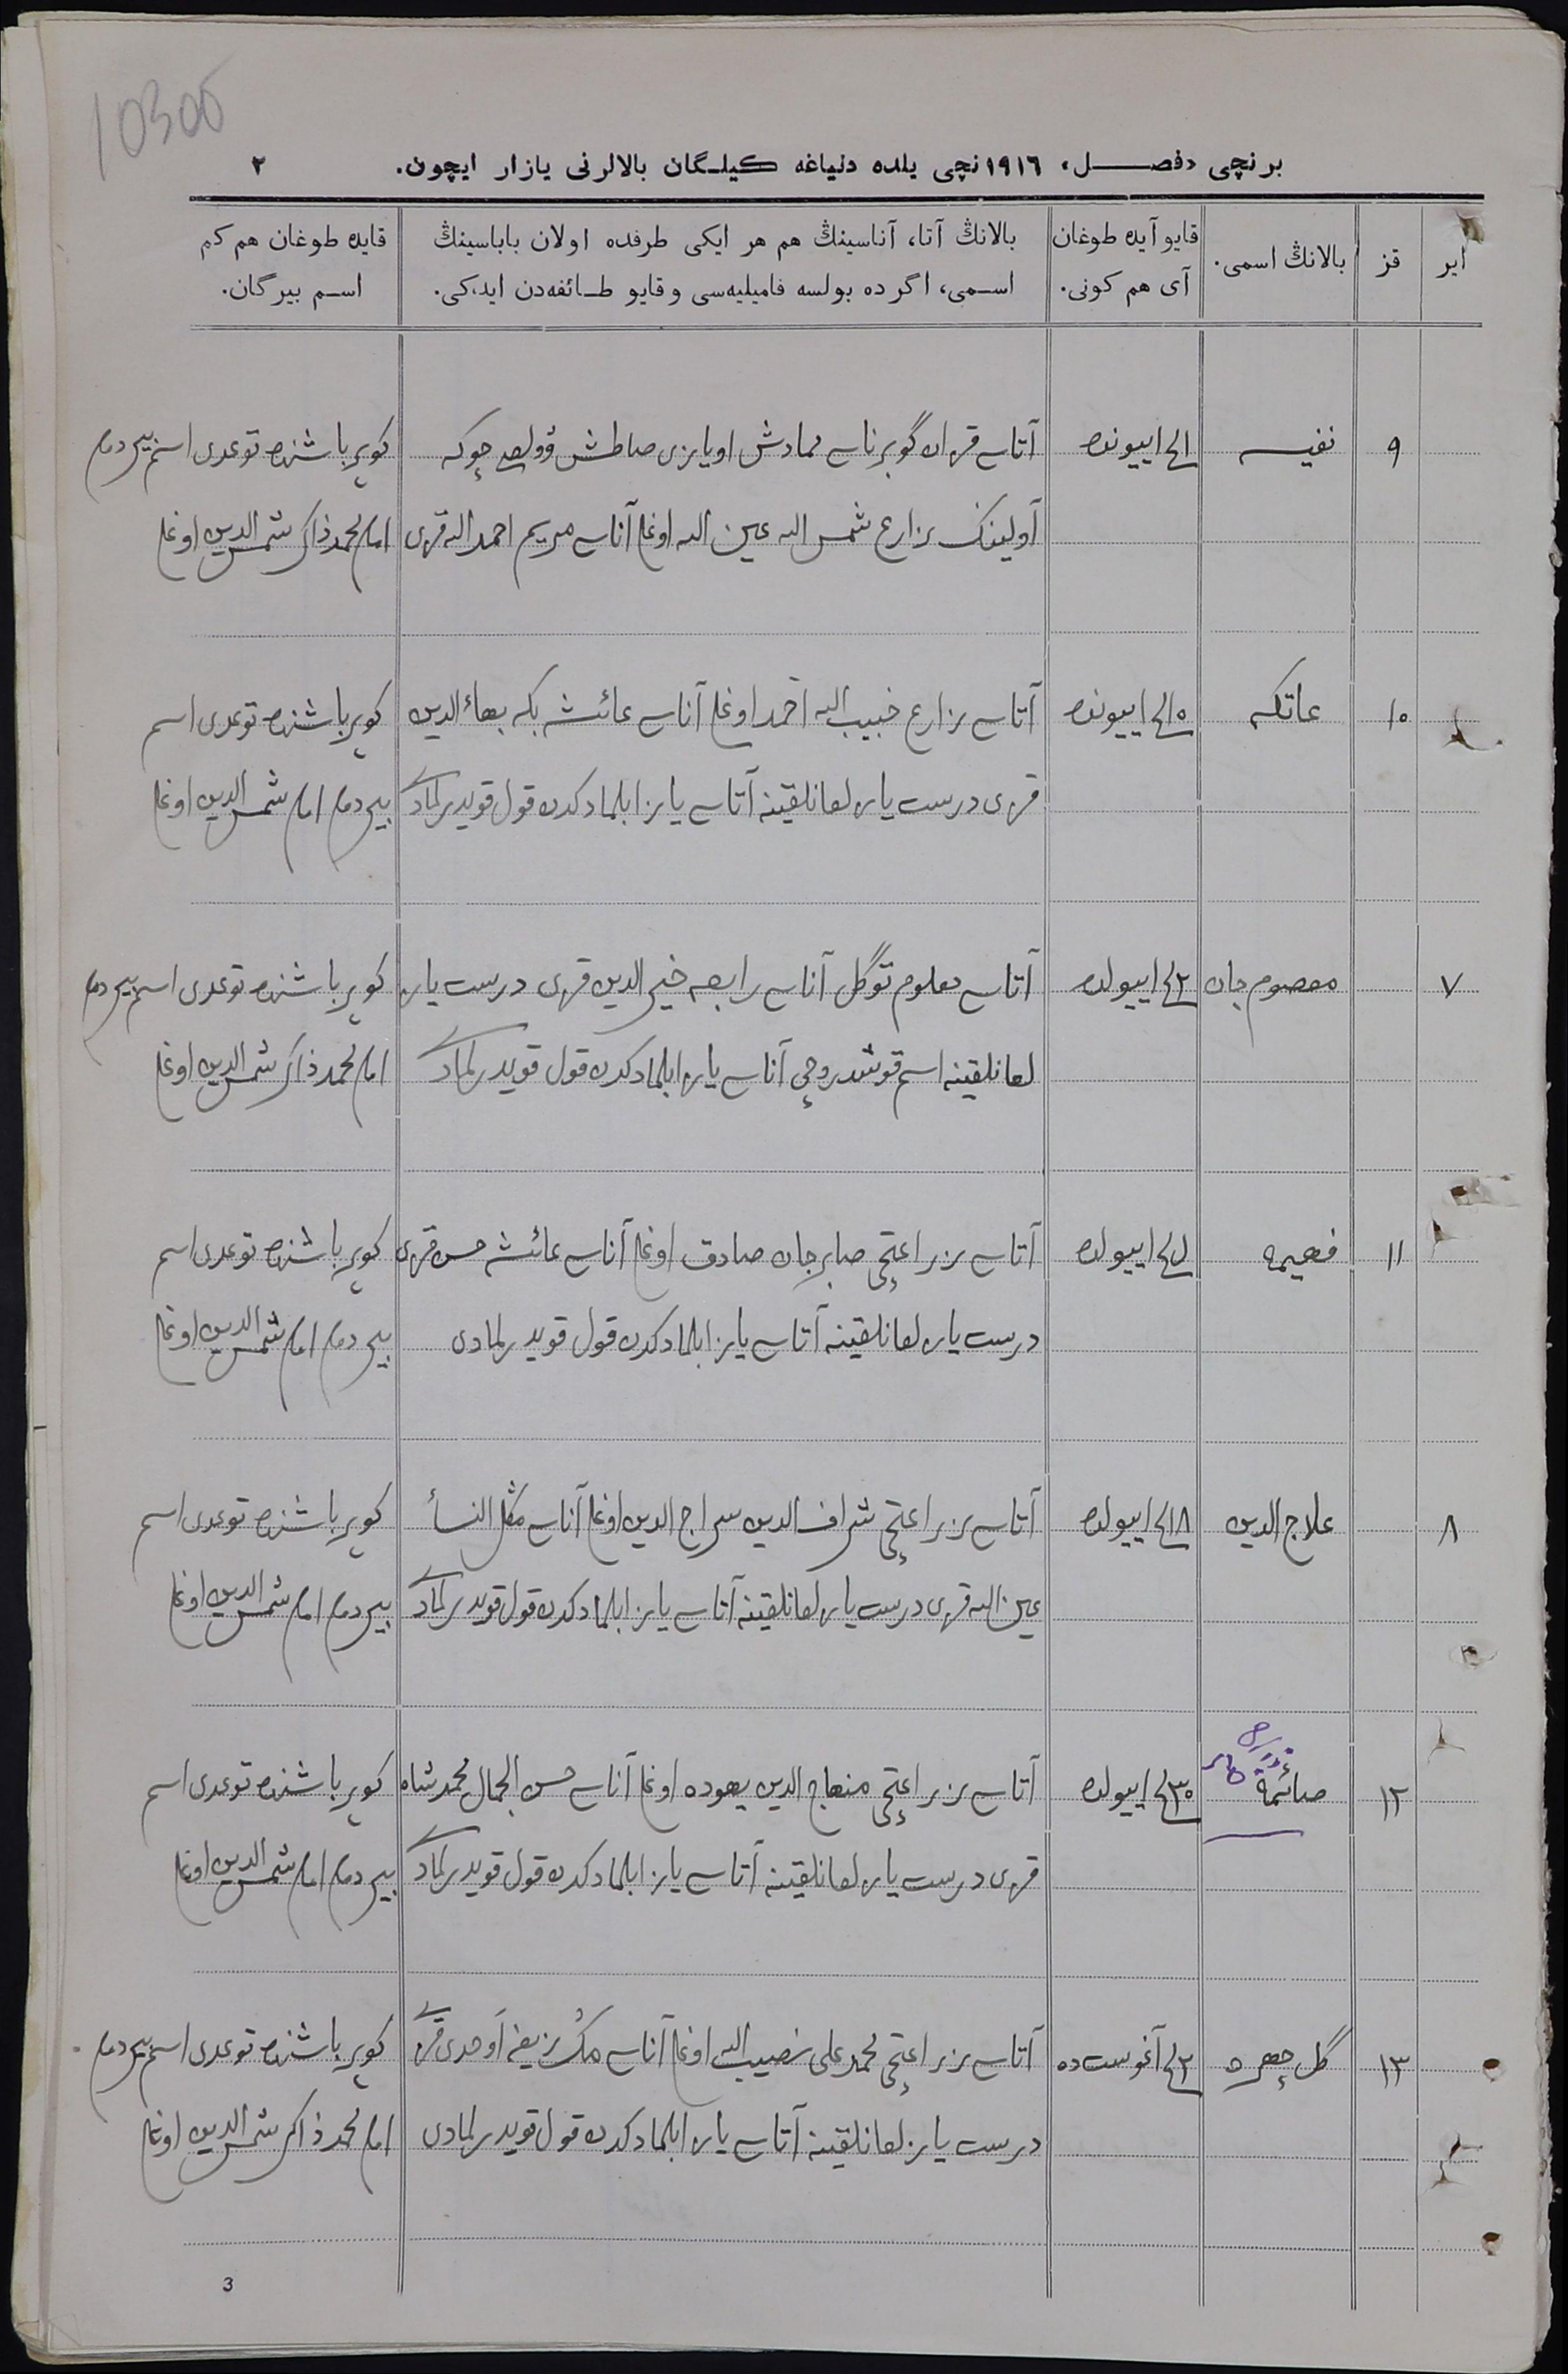 10300
برنچی «فصل» ١٩١٦نچی یلده دنیاغه کیلگان بالالرنی یازار ایچون. ٢
ایر
قز
بالانڭ اسمی.
قایو آیده طوغان
آی هم کونی.
بالانڭ آتا، آناسینڭ هم هر ایکی طرفده اولان باباسینڭ
اسمی، اگر ده بولسه فامیلیه‌سی و قایو طائفه‌دن ایدکی.
قایده طوغان هم کم
اسم بیرگان.
٩ نفیسه اییونده آتاسی قزان گوبرناسی اویازی
آولینڭ زارع شمس الله عین الله اوغلی آناسی مریم احمد الله قزی
کویرباشنده توغدی اسم بیردم
امام محمد ذاکر شمس الدین اوغلی
١٠ عاتکه اییونده آتاسی زارع حبیب الله احمد اوغلی آناسی عائشه بکه بهاءالدین
قزی درست یازلغانلقینه آتاسی یازا بلمادکدن قول قویدرلمادی
کویرباشنده توغدی اسم
بیردم امام شمس الدین اوغلی
٧ معصوم جان اییولده آتاسی معلوم توگل آناسی رابعه خیرالدین قزی درست یاز
لغانلقینه اسم قوشدروچی آناسی یازا بلمادکدن قول قویدرلمادی
کویرباشنده توغدی اسم بیردم
امام محمد ذاکر شمس الدین اوغلی
١١ فهیمه اییولده آتاسی زراعتچی صابرجان صادق اوغلی آناسی عائشه حسن قزی
درست یازلغانلقینه آتاسی یازا بلمادکدن قول قویدرلمادی
کویرباشنده توغدی اسم
بیردم امام شمس الدین اوغلی
٨ علاج الدین ١٨ اییولده آتاسی زراعتچی شراف الدین سراج الدین اوغلی آناسی النسأ
عین الله قزی درست یازلغانلقینه آتاسی یازا بلمادکدن قول قویدرلمادی
کویرباشنده توغدی اسم
بیردم امام شمس الدین اوغلی
١٢ صائمه ٣٠ اییولده آتاسی زراعتچی منهاج الدین یهوده اوغلی آناسی حسن الجمال محمدشاه
قزی درست یازلغانلقینه آتاسی یازا بلمادکدن قول قویدرلمادی
کویرباشنده توغدی اسم
بیردم امام شمس الدین اوغلی
١٣ گل چهره آغوست ده آتاسی زراعتچی محمدعلی نصیب الله اوغلی آناسی
درست یازلغانلقینه آتاسی یازا بلمادکدن قول قویدرلمادی
کویرباشنده توغدی اسم بیردم
امام محمد ذاکر شمس الدین اوغلی
3